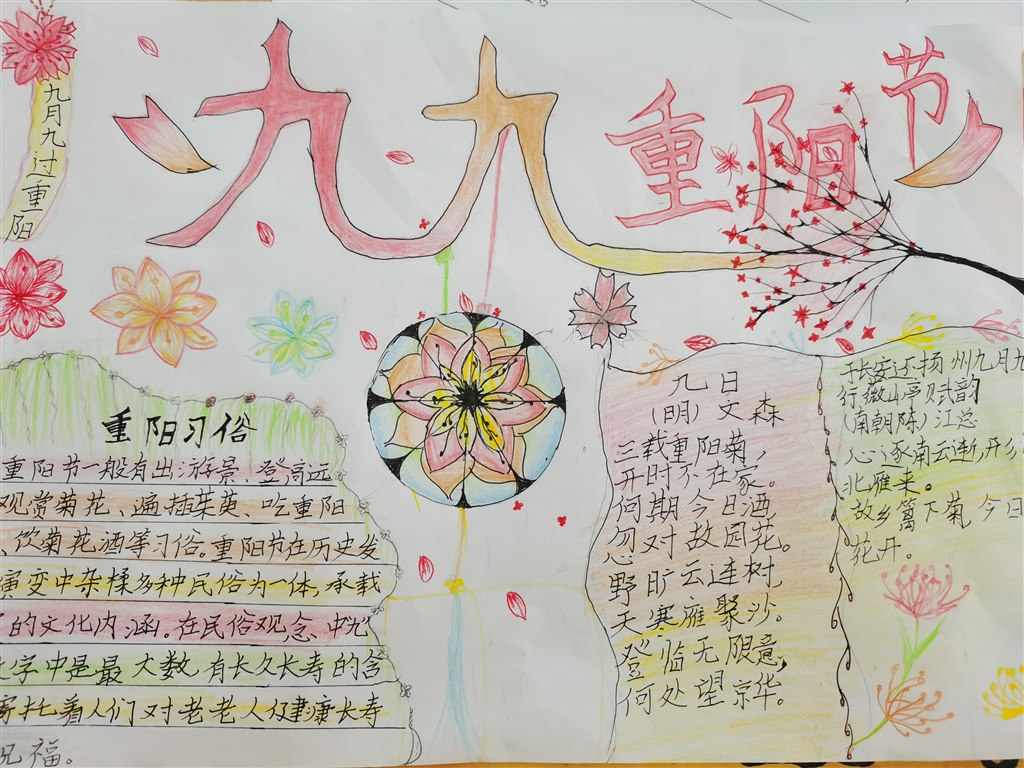 九月九过重阳
九九重阳节
重阳习俗
重阳节一般有出游景、登高远
观赏菊花、遍插茱萸、吃重阳
、饮菊花酒等习俗。重阳节在历史发
演变中杂糅多种民俗为一体,承载
的文化内涵。在民俗观念中九
字中是最大数,有长久长寿的含
寄托着人们对老老人健康长寿
祝福。
九日
(明)文森
三载重阳菊,
开时不在家。
何期今日酒
忽对故园花。
野旷云连树,
天寒雁聚沙。
登临无限意,
何处望京华。
于长安还扬州九月九
行微山亭赋韵
(南朝陈)江总
心逐南云逝,形
北雁来。
故乡篱下菊,今日
花开。